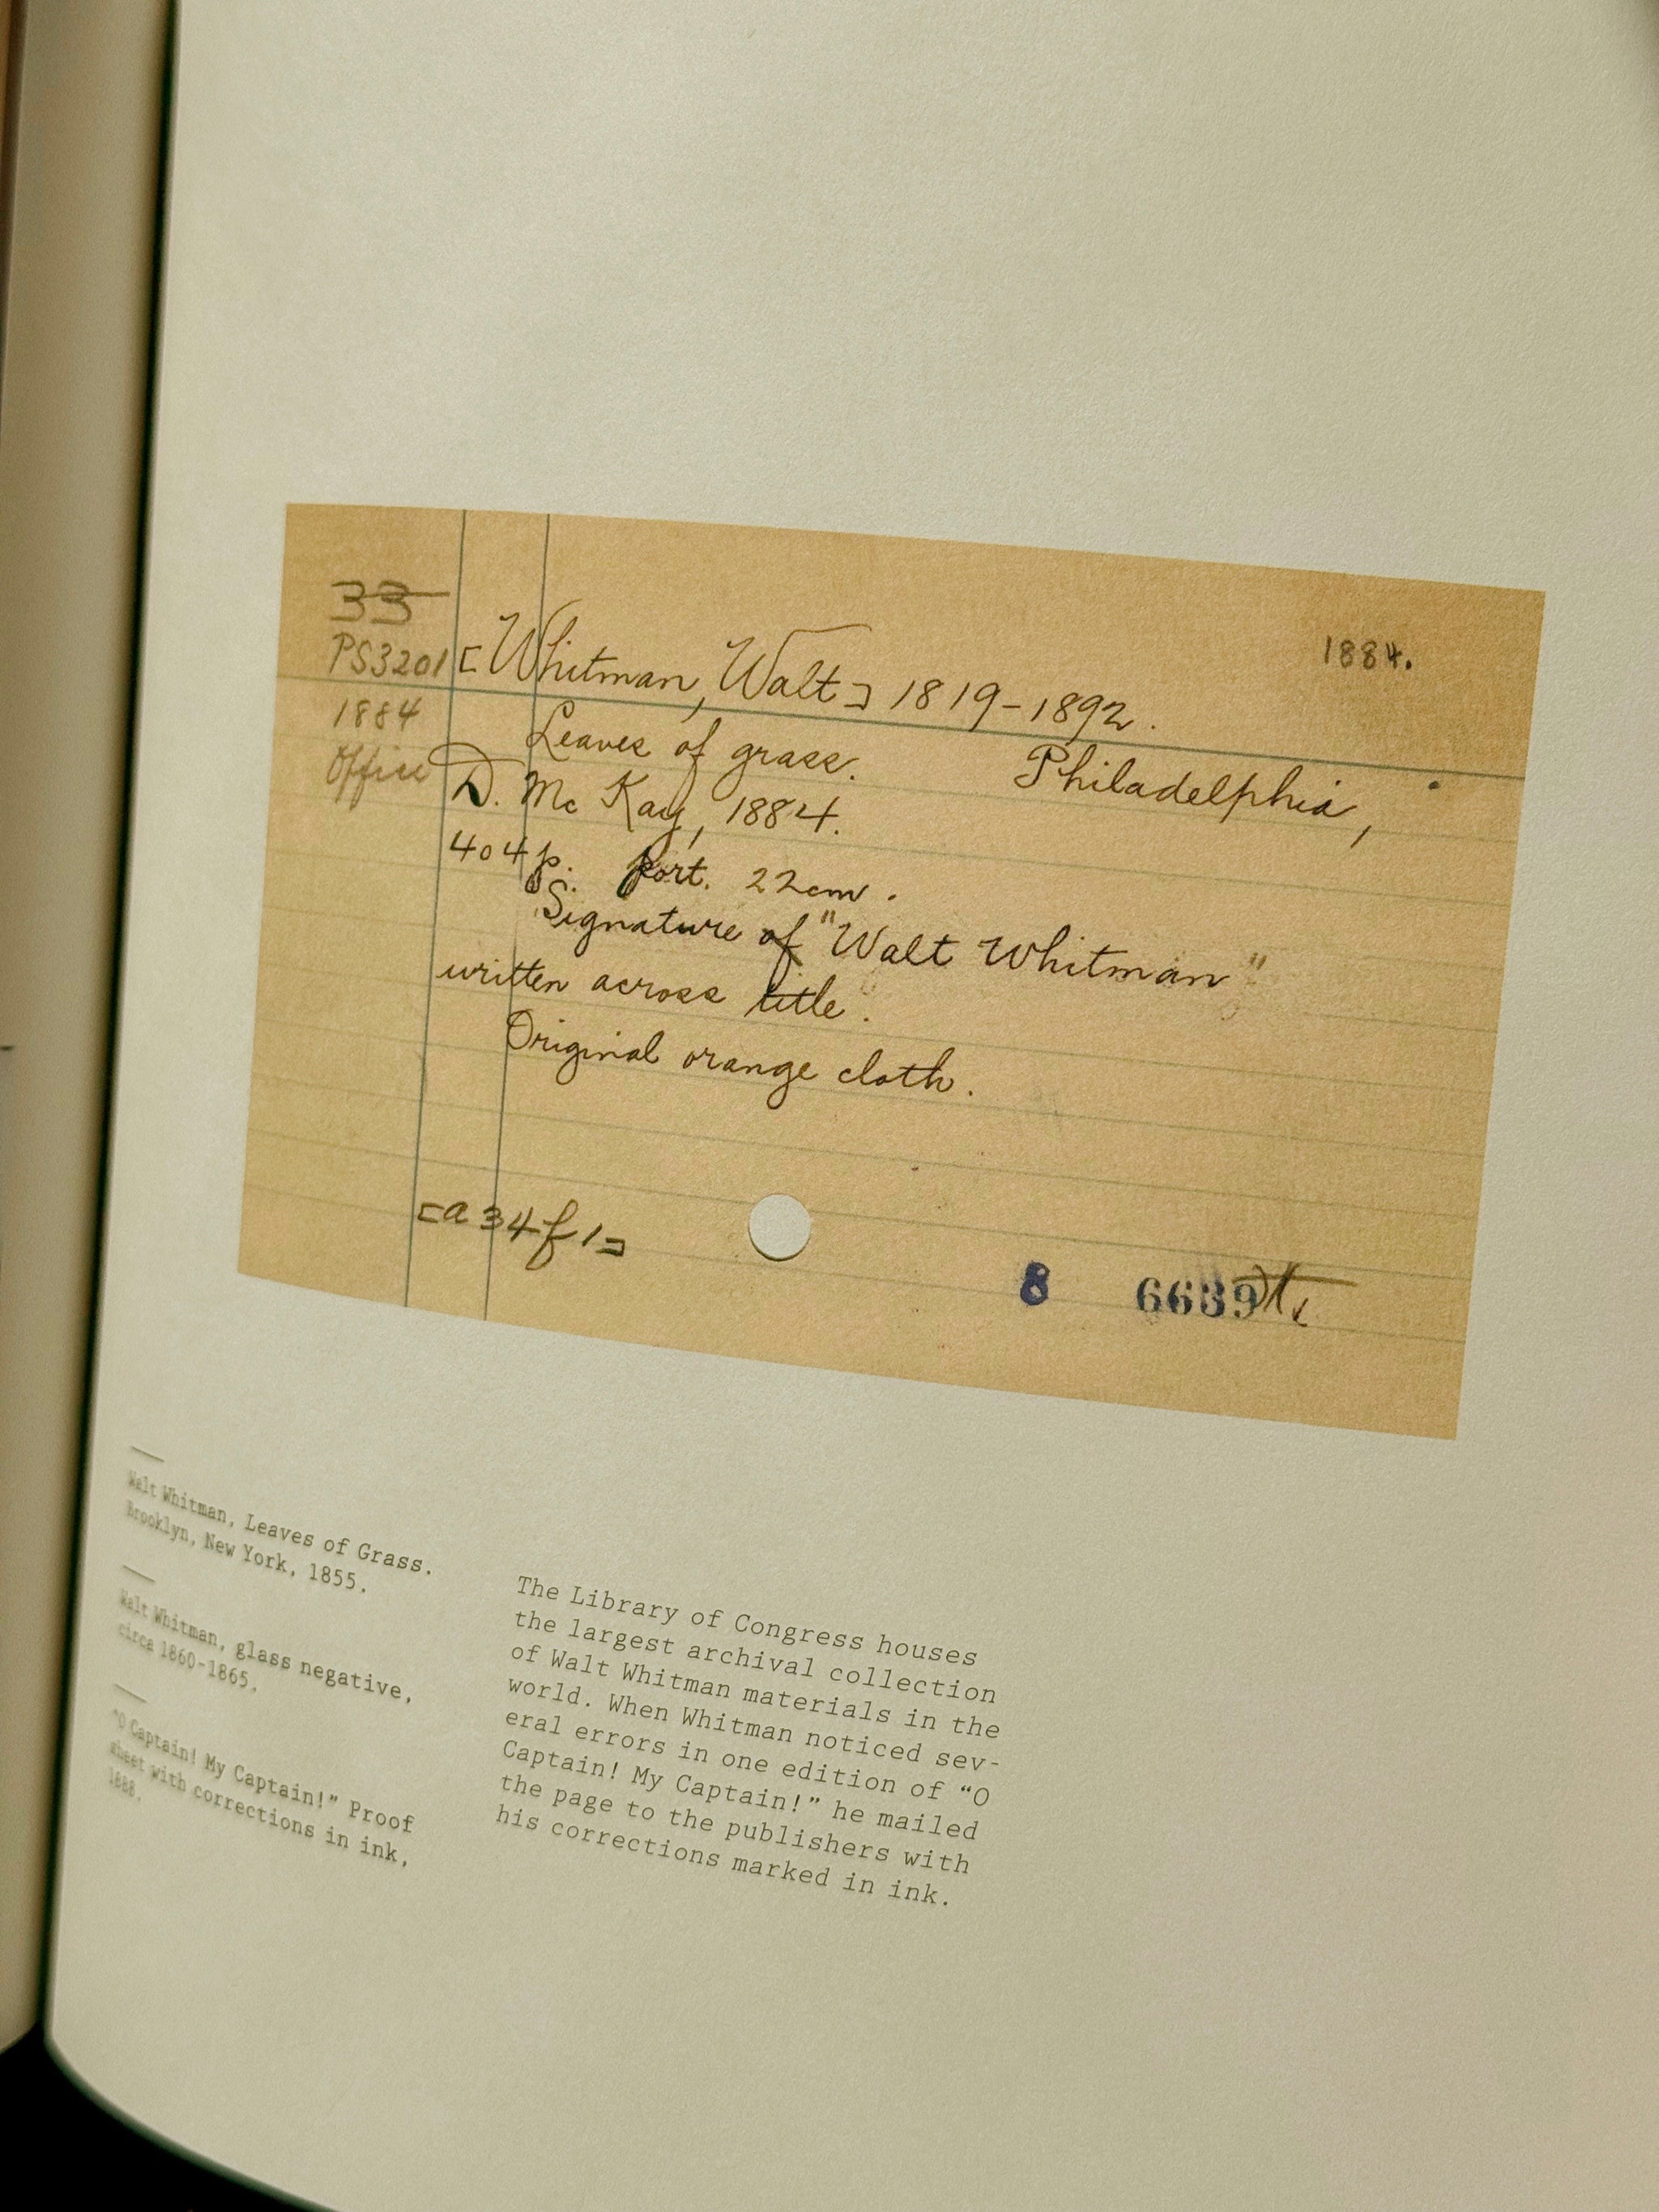 33
PS3201
1884
Office
1884.
[Whitman, Walt] 1819-1892.
Leaves of grass. Philadelphia,
D. McKay, 1884.
404p. port. 22cm.
Signature of "Walt Whitman"
written across title.
Original orange cloth.
[a34f1]
8 6639
Walt Whitman, Leaves of Grass.
Brooklyn, New York, 1855.
Walt Whitman, glass negative,
circa 1860-1865.
"O Captain! My Captain!" Proof
sheet with corrections in ink,
1888.
The Library of Congress houses
the largest archival collection
of Walt Whitman materials in the
world. When Whitman noticed sev-
eral errors in one edition of “O
Captain! My Captain!” he mailed
the page to the publishers with
his corrections marked in ink.